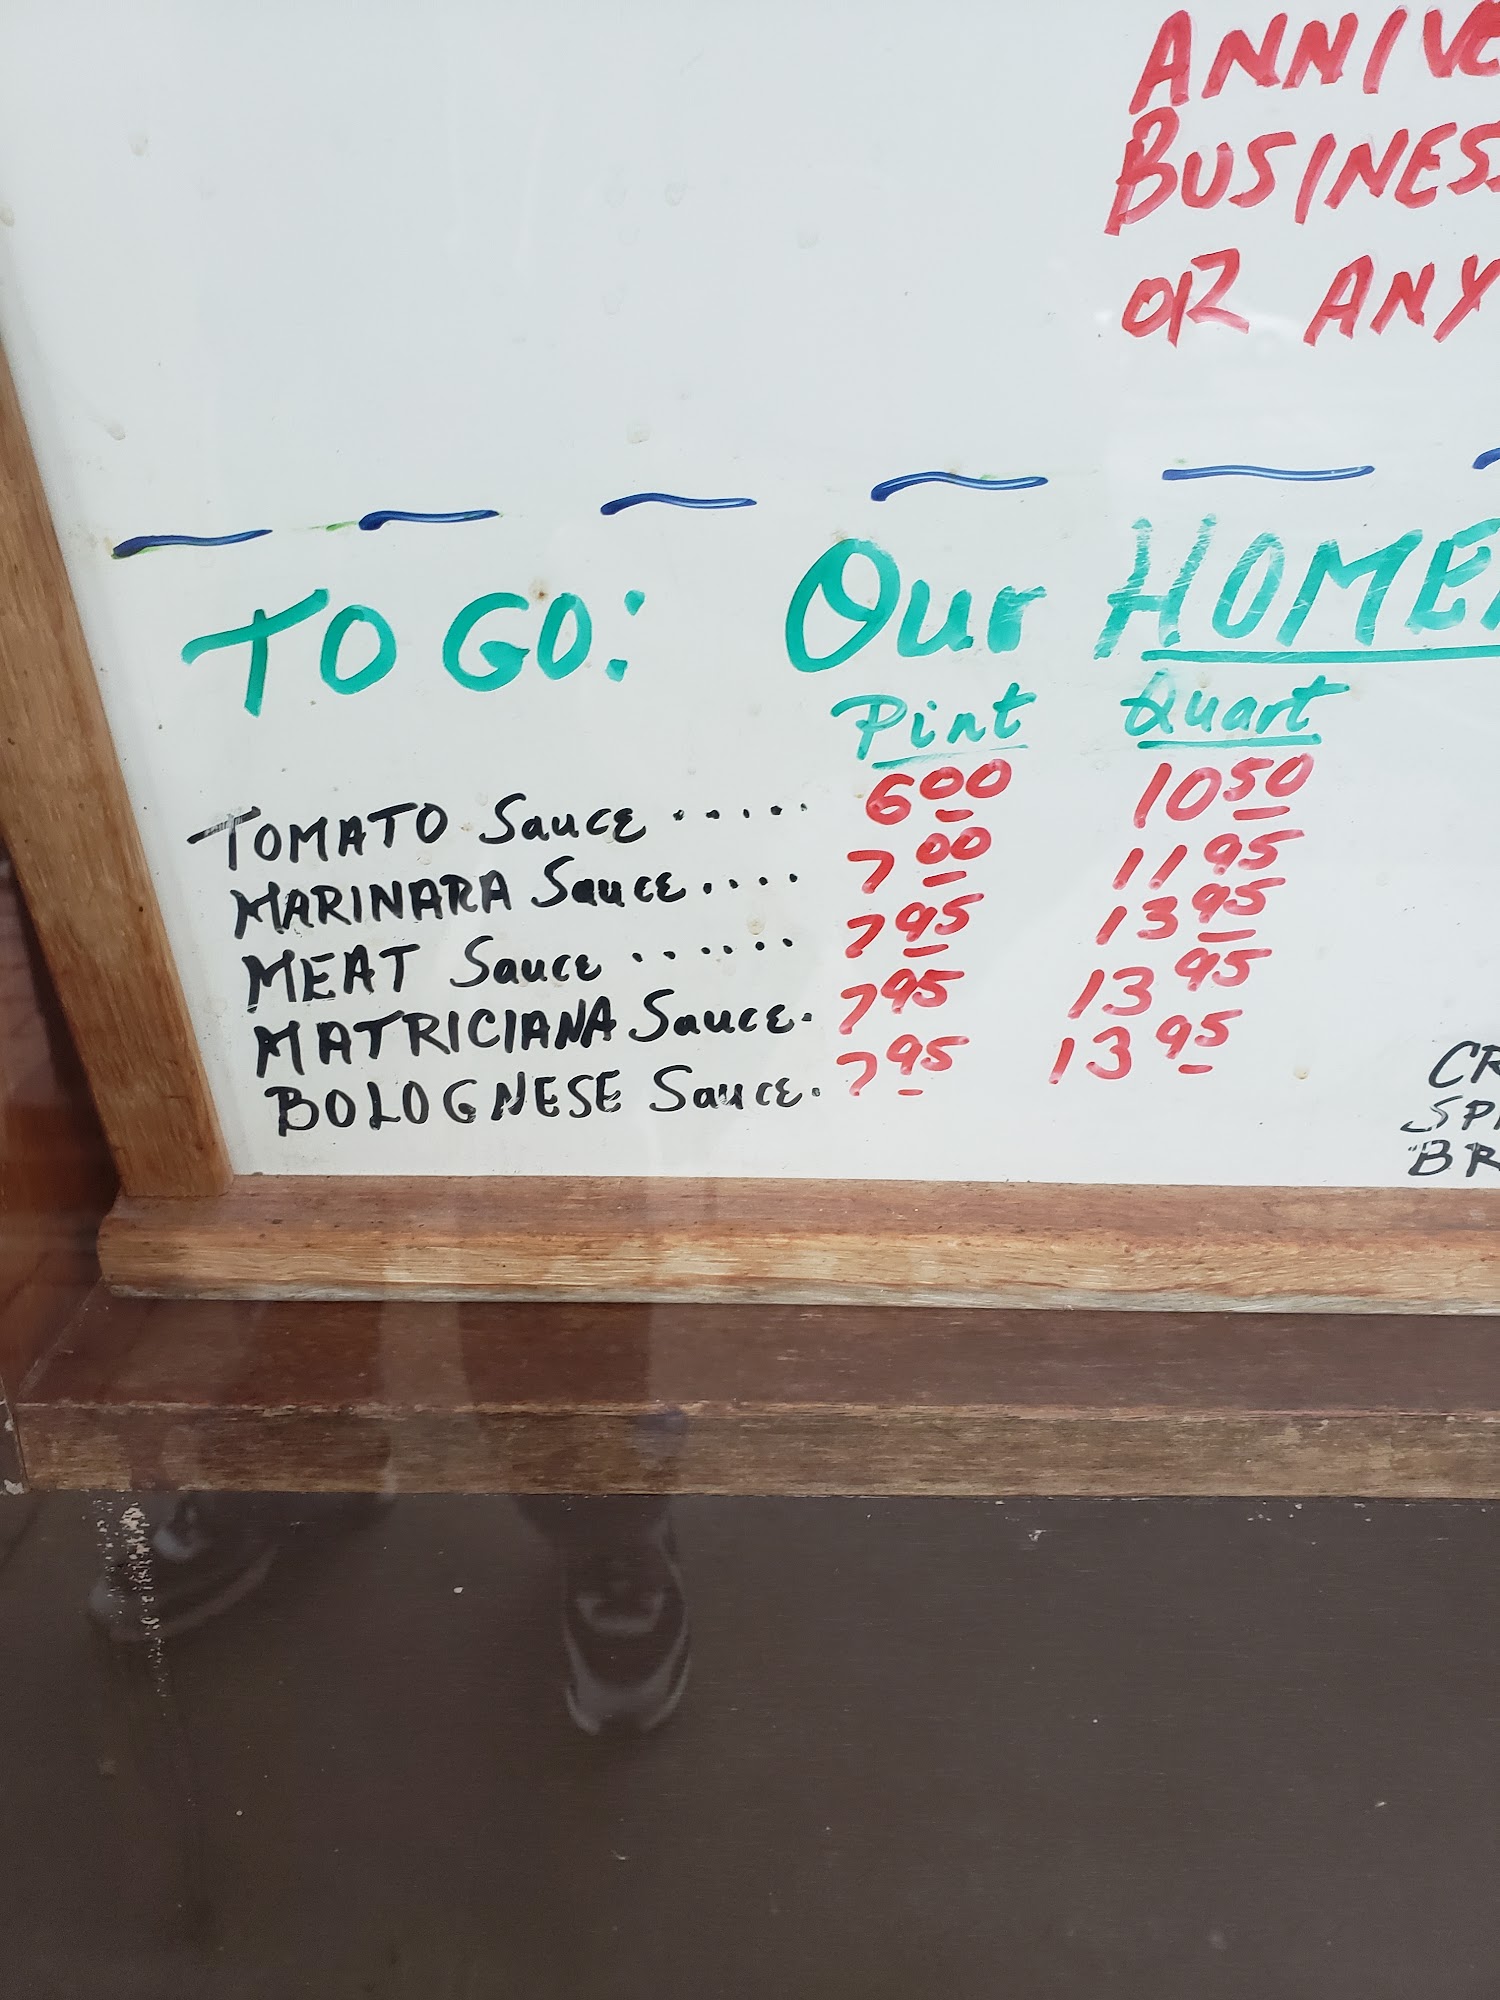 ANNIVE
BUSINESS
OR ANY
TO GO: Our HOME
Pint Quart
TOMATO Sauce ..... 6 00 10 50
MARINARA Sauce.... 7 00 11 95
MEAT Sauce ...... 7 95 13 95
MATRICIANA Sauce. 7 95 13 95
BOLOGNESE Sauce. 7 95 13 95
CR
SP
BR